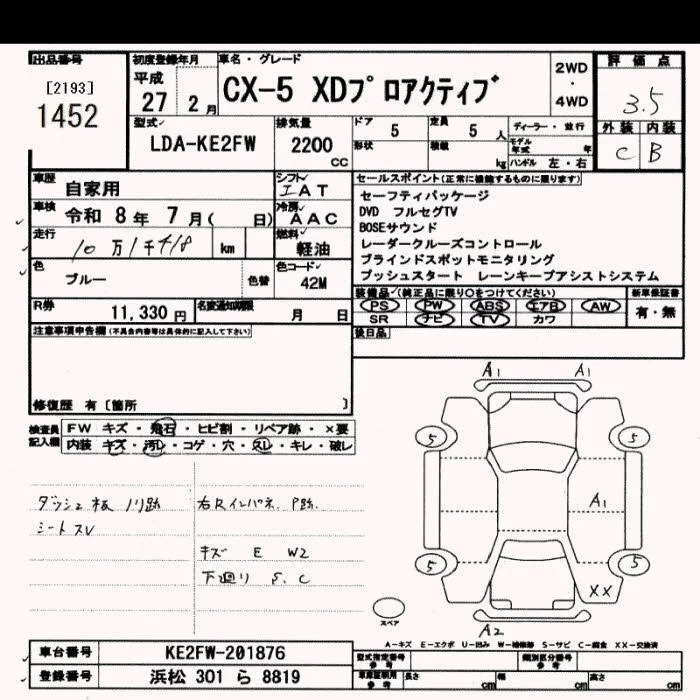 出品番号
[2193]
1452
初度登録年月
平成
27 2月
車名・グレード
CX-5 XDプロアクティブ
2WD
・
4WD
評価点
3.5
外装 内装
C B
型式
LDA-KE2FW
排気量
2200
CC
ドア
5
定員
5人
ディーラー・並行
形状
積載
kg
モデル年式 年
ハンドル 左・右
車歴
自家用
シフト
IAT
車検
令和 8年 7月( 日)
冷房
AAC
走行
10万1千418 km
燃料
軽油
色
ブルー
色替
色コード
42M
R券
11,330円
名変通知期限
月 日
セールスポイント(正常に機能するものに限ります)
セーフティパッケージ
DVD フルセグTV
BOSEサウンド
レーダークルーズコントロール
ブラインドスポットモニタリング
プッシュスタート レーンキープアシストシステム
装備品(純正品に限り○をつけてください)
PS PW ABS エアB AW
SR ナビ TV カワ
新車保証書
有・無
後日品
注意事項申告欄(不具合内容等は具体的に記入して下さい)
修復歴 有〔箇所 〕
検査員記入欄
FW キズ・飛石・ヒビ割・リペア跡・×要
内装 キズ・汚レ・コゲ・穴・スレ・キレ・破レ
ダッシュ板 ノリ跡
シートスレ
右Rインパネ、P跡、
キズ E W2
下廻り S、C
A1 A1
5 5
A1
5 5
XX
A2
スペア
A-キズ E-エクボ U-凹み W-補修跡 S-サビ C-腐食 XX-交換済
車台番号
KE2FW-201876
登録番号
浜松 301 ら 8819
型式指定番号
参考
類別区分番号
参考
車庫証明用
参考
長さ cm
幅 cm
高さ cm